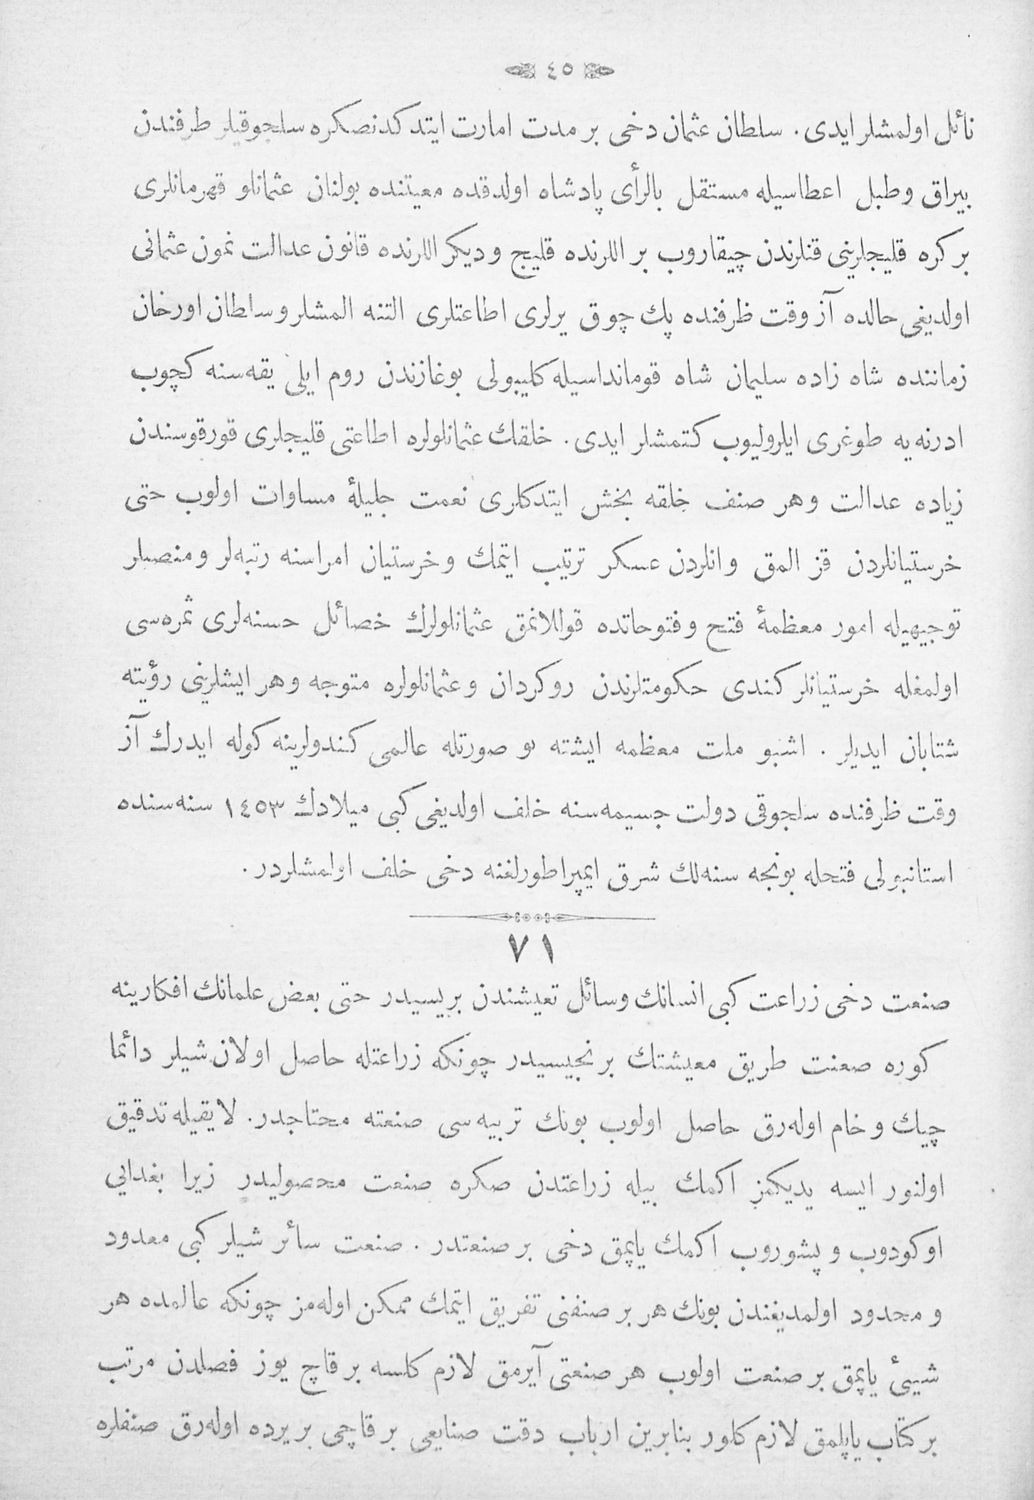 ٤٥
نائل اولمشلر ایدی. سلطان عثمان دخی بر مدت امارت ایتدكدنصكره سلجوقیلر طرفندن
بیراق وطبل اعطاسیله مستقل بالرأی پادشاه اولدقده معیتنده بولنان عثمانلو قهرمانلری
بركره قلیجلرینی قنلرندن چیقاروب بر اللرنده قلیج و دیكر اللرنده قانون عدالت نمون عثمانی
اولدیغی حالده آز وقت ظرفنده پك چوق یرلری اطاعتلری التنه المشلر و سلطان اورخان
زماننده شاه زاده سلیمان شاه قومانداسیله كلیبولی بوغازندن روم ایلی یقه‌سنه كچوب
ادرنه‌یه طوغری ایلرولیوب كتمشلر ایدی. خلقك عثمانلولره اطاعتی قلیجلری قورقوسندن
زیاده عدالت وهر صنف خلقه بخش ایتدكلری نعمت جلیلهٔ مساوات اولوب حتی
خرستیانلردن قز المق وانلردن عسكر ترتیب ایتمك وخرستیان امراسنه رتبه‌لر ومنصبلر
توجیهیله امور معظمهٔ فتح و فتوحاتده قوللانمق عثمانلولرك خصائل حسنه‌لری ثمره‌سی
اولمغله خرستیانلر كندی حكومتلرندن روكردان وعثمانلولره متوجه وهر ایشلرینی رؤیته
شتابان ایدیلر . اشبو ملت معظمه ایشته بو صورتله عالمی كندولرینه كوله ایدرك آز
وقت ظرفنده سلجوقی دولت جسیمه‌سنه خلف اولدیغی كبی میلادك ١٤٥٣ سنه‌سنده
استانبولی فتحله بونجه سنه‌لك شرق ایمپراطورلغنه دخی خلف اولمشلردر.
٧١
صنعت دخی زراعت كبی انسانك وسائل تعیشندن بریسیدر حتی بعض علمانك افكارینه
كوره صنعت طریق معیشتك برنجیسیدر چونكه زراعتله حاصل اولان شیلر دائما
چیك و خام اوله‌رق حاصل اولوب بونك تربیه‌سی صنعته محتاجدر. لایقیله تدقیق
اولنور ایسه یدیكمز اكمك بیله زراعتدن صكره صنعت محصولیدر زیرا بغدایی
اوكودوب و پشوروب اكمك یاپمق دخی بر صنعتدر . صنعت سائر شیلر كبی معدود
و محدود اولمدیغندن بونك هر بر صنفنی تفریق ایتمك ممكن اوله‌مز چونكه عالمده هر
شیئ یاپمق بر صنعت اولوب هر صنعتی آیرمق لازم كلسه بر قاچ یوز فصلدن مرتب
بر كتاب یاپلمق لازم كلور بنابرین ارباب دقت صنایعی بر قاچی بر یرده اوله‌رق صنفلره